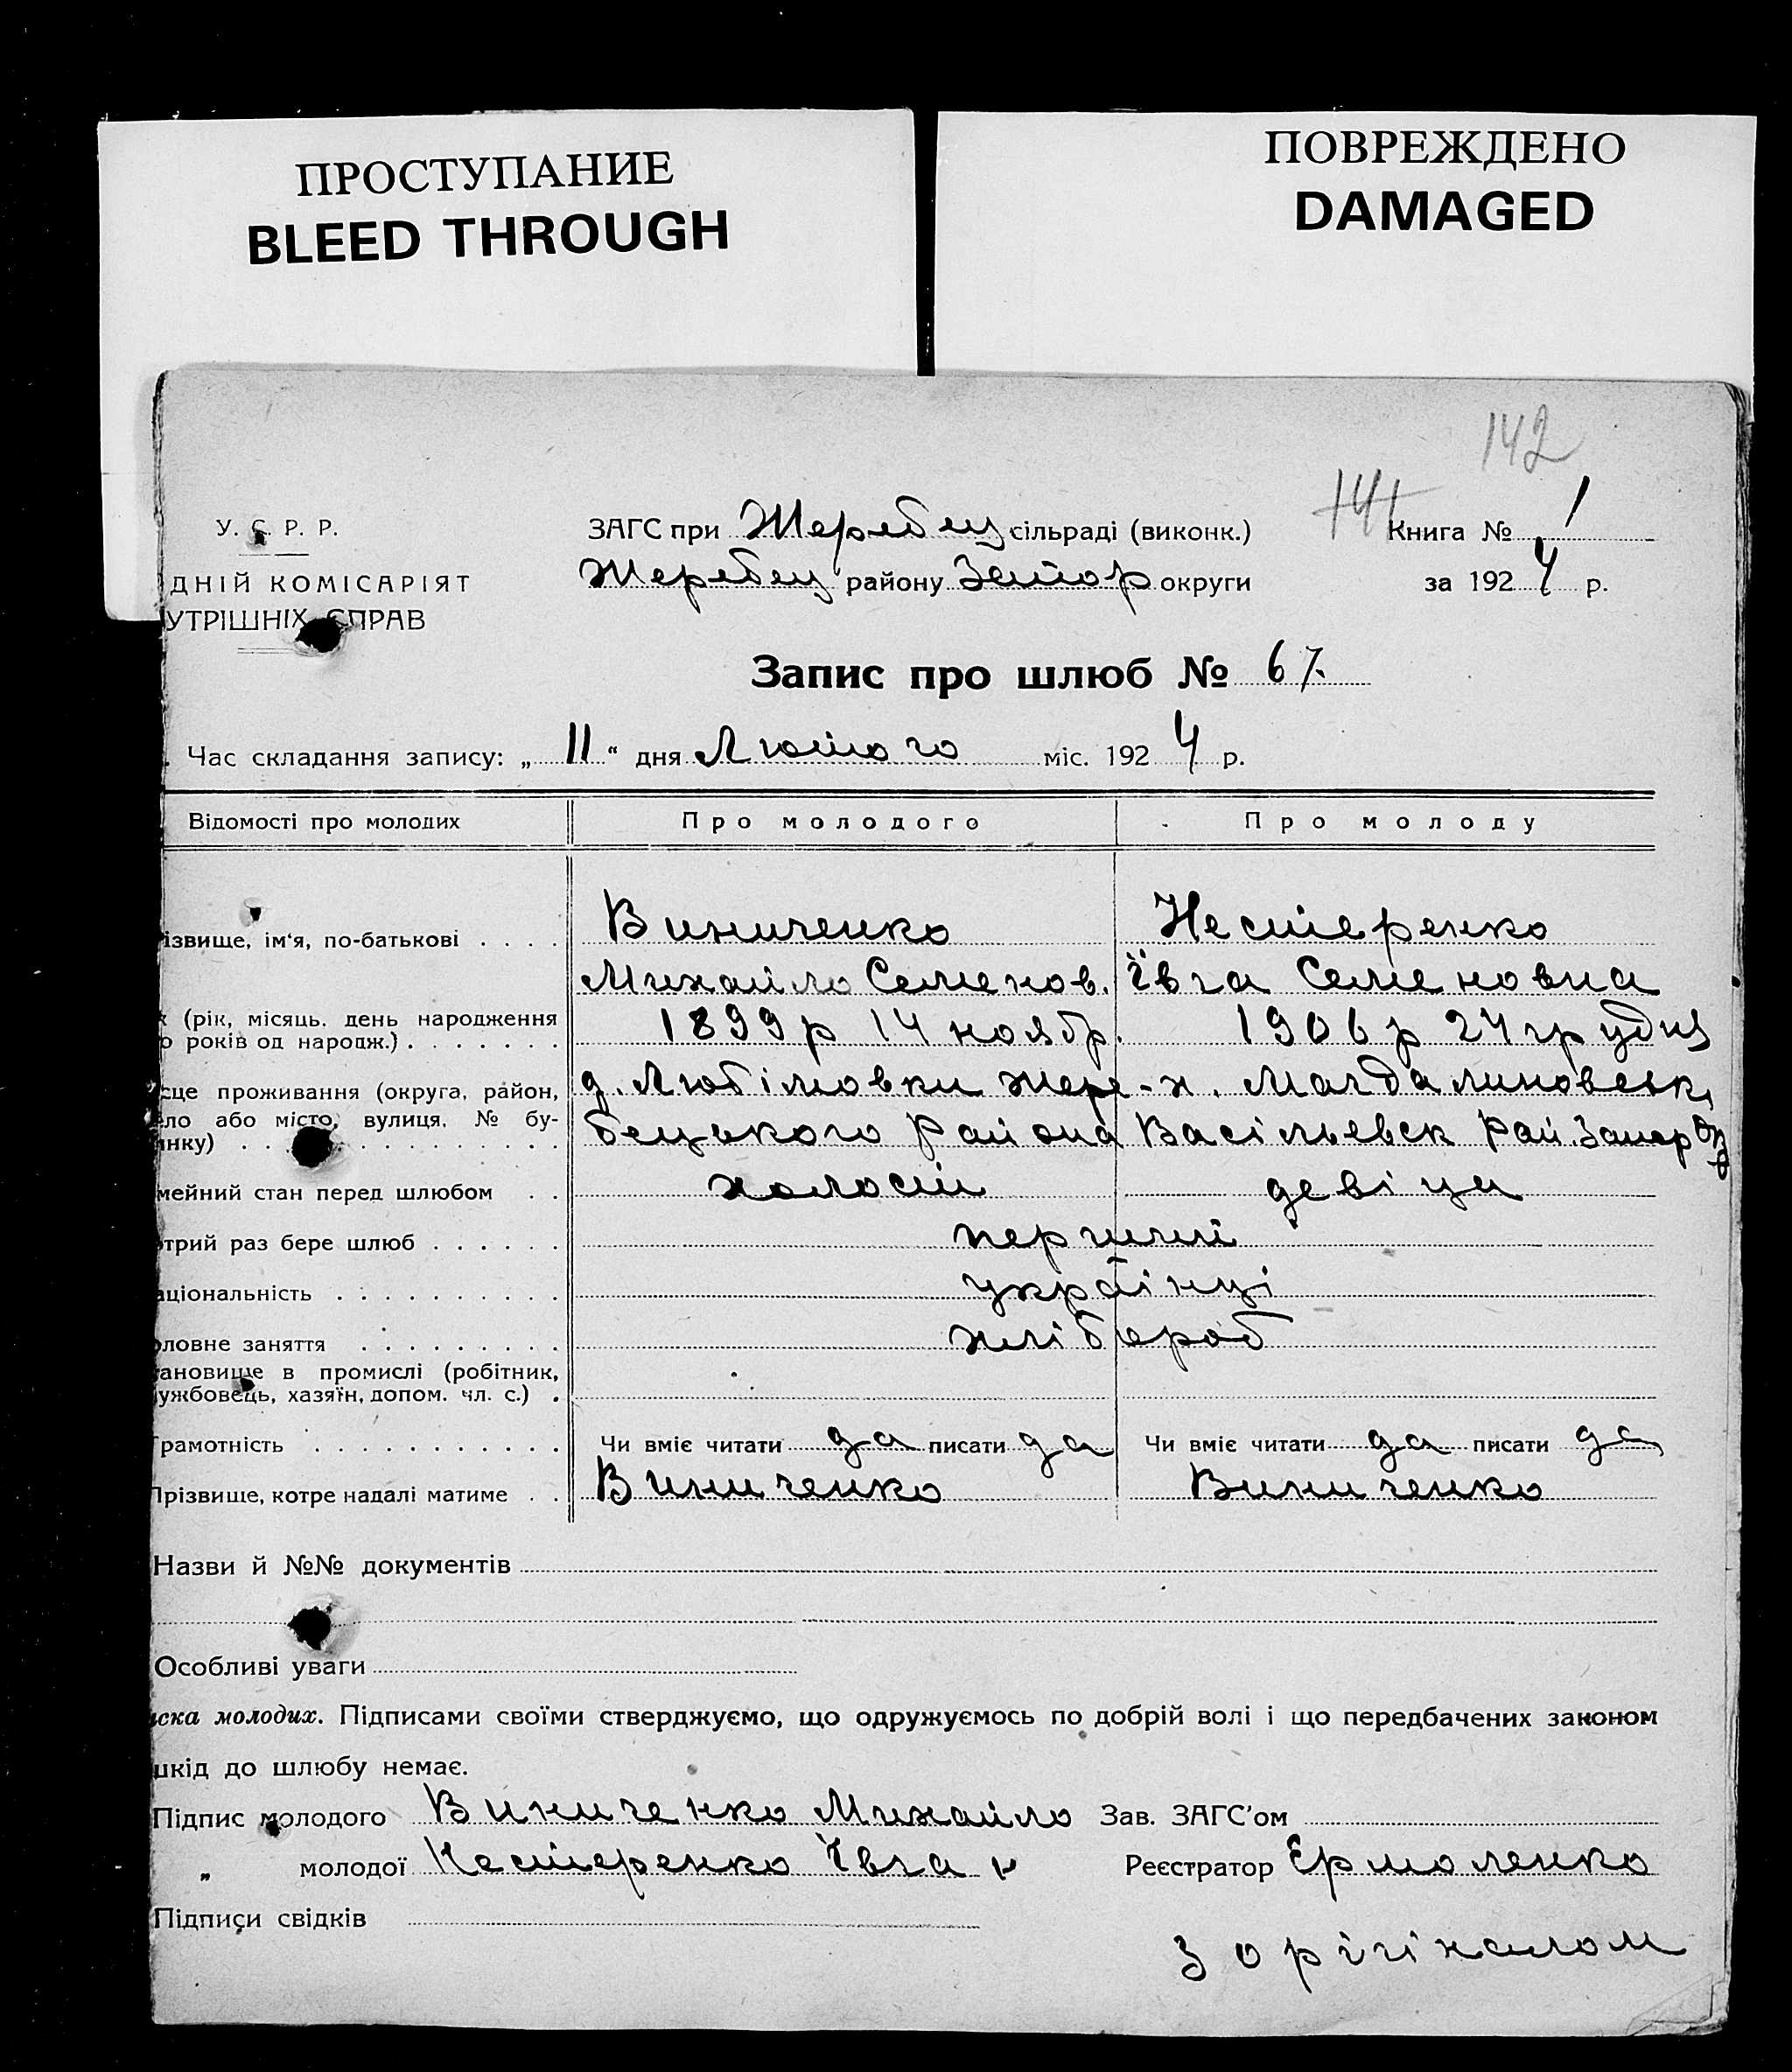 ПРОСТУПАНИЕ
BLEED THROUGH
ПОВРЕЖДЕНО
DAMAGED
142
141
У. С. Р. Р.
ДНІЙ КОМІСАРІЯТ
УТРІШНІХ СПРАВ
ЗАГС при Жеребец сільраді (виконк.)
Жеребец району Запор округи
Книга № 1
за 1924 р.
Запис про шлюб № 67.
Час складання запису: „ 11 “ дня Лютого міс. 1924 р.
Відомості про молодих Про молодого Про молоду
ізвище, ім'я, по-батькові . . . . Виниченко Нестеренко
Михайло Семенов. Ївга Семеновна
(рік, місяць. день народження 1899 р 14 ноябр. 1906 р 24 грудня
о років од народж.) . . . . . . .
сце проживання (округа, район, д. Любімовки Жере- х. Магдалиновськ,
ло або місто, вулиця, № бу- бецького Района Васільевск Рай. Запор Окр
инку) . . . . . . . . . . .
мейний стан перед шлюбом . . холостий девіца
отрий раз бере шлюб . . . . . . перший
аціональність . . . . . . . . . . українці
оловне заняття . . . . . . . . . хлібероб
тановище в промислі (робітник,
ужбовець, хазяїн, допом. чл. с.) .
Грамотність . . . . . . . . . . . Чи вміє читати да писати да Чи вміє читати да писати да
Прізвище, котре надалі матиме . . Виниченко Виниченко
Назви й №№ документів
Особливі уваги
ска молодих. Підписами своїми стверджуємо, що одружуємось по добрій волі і що передбачених законом
шкід до шлюбу немає.
Підпис молодого Виниченко Михайло Зав. ЗАГС'ом
„ молодої Нестеренко Ївга Реєстратор Єрмоленко
Підписи свідків
З орігіналом